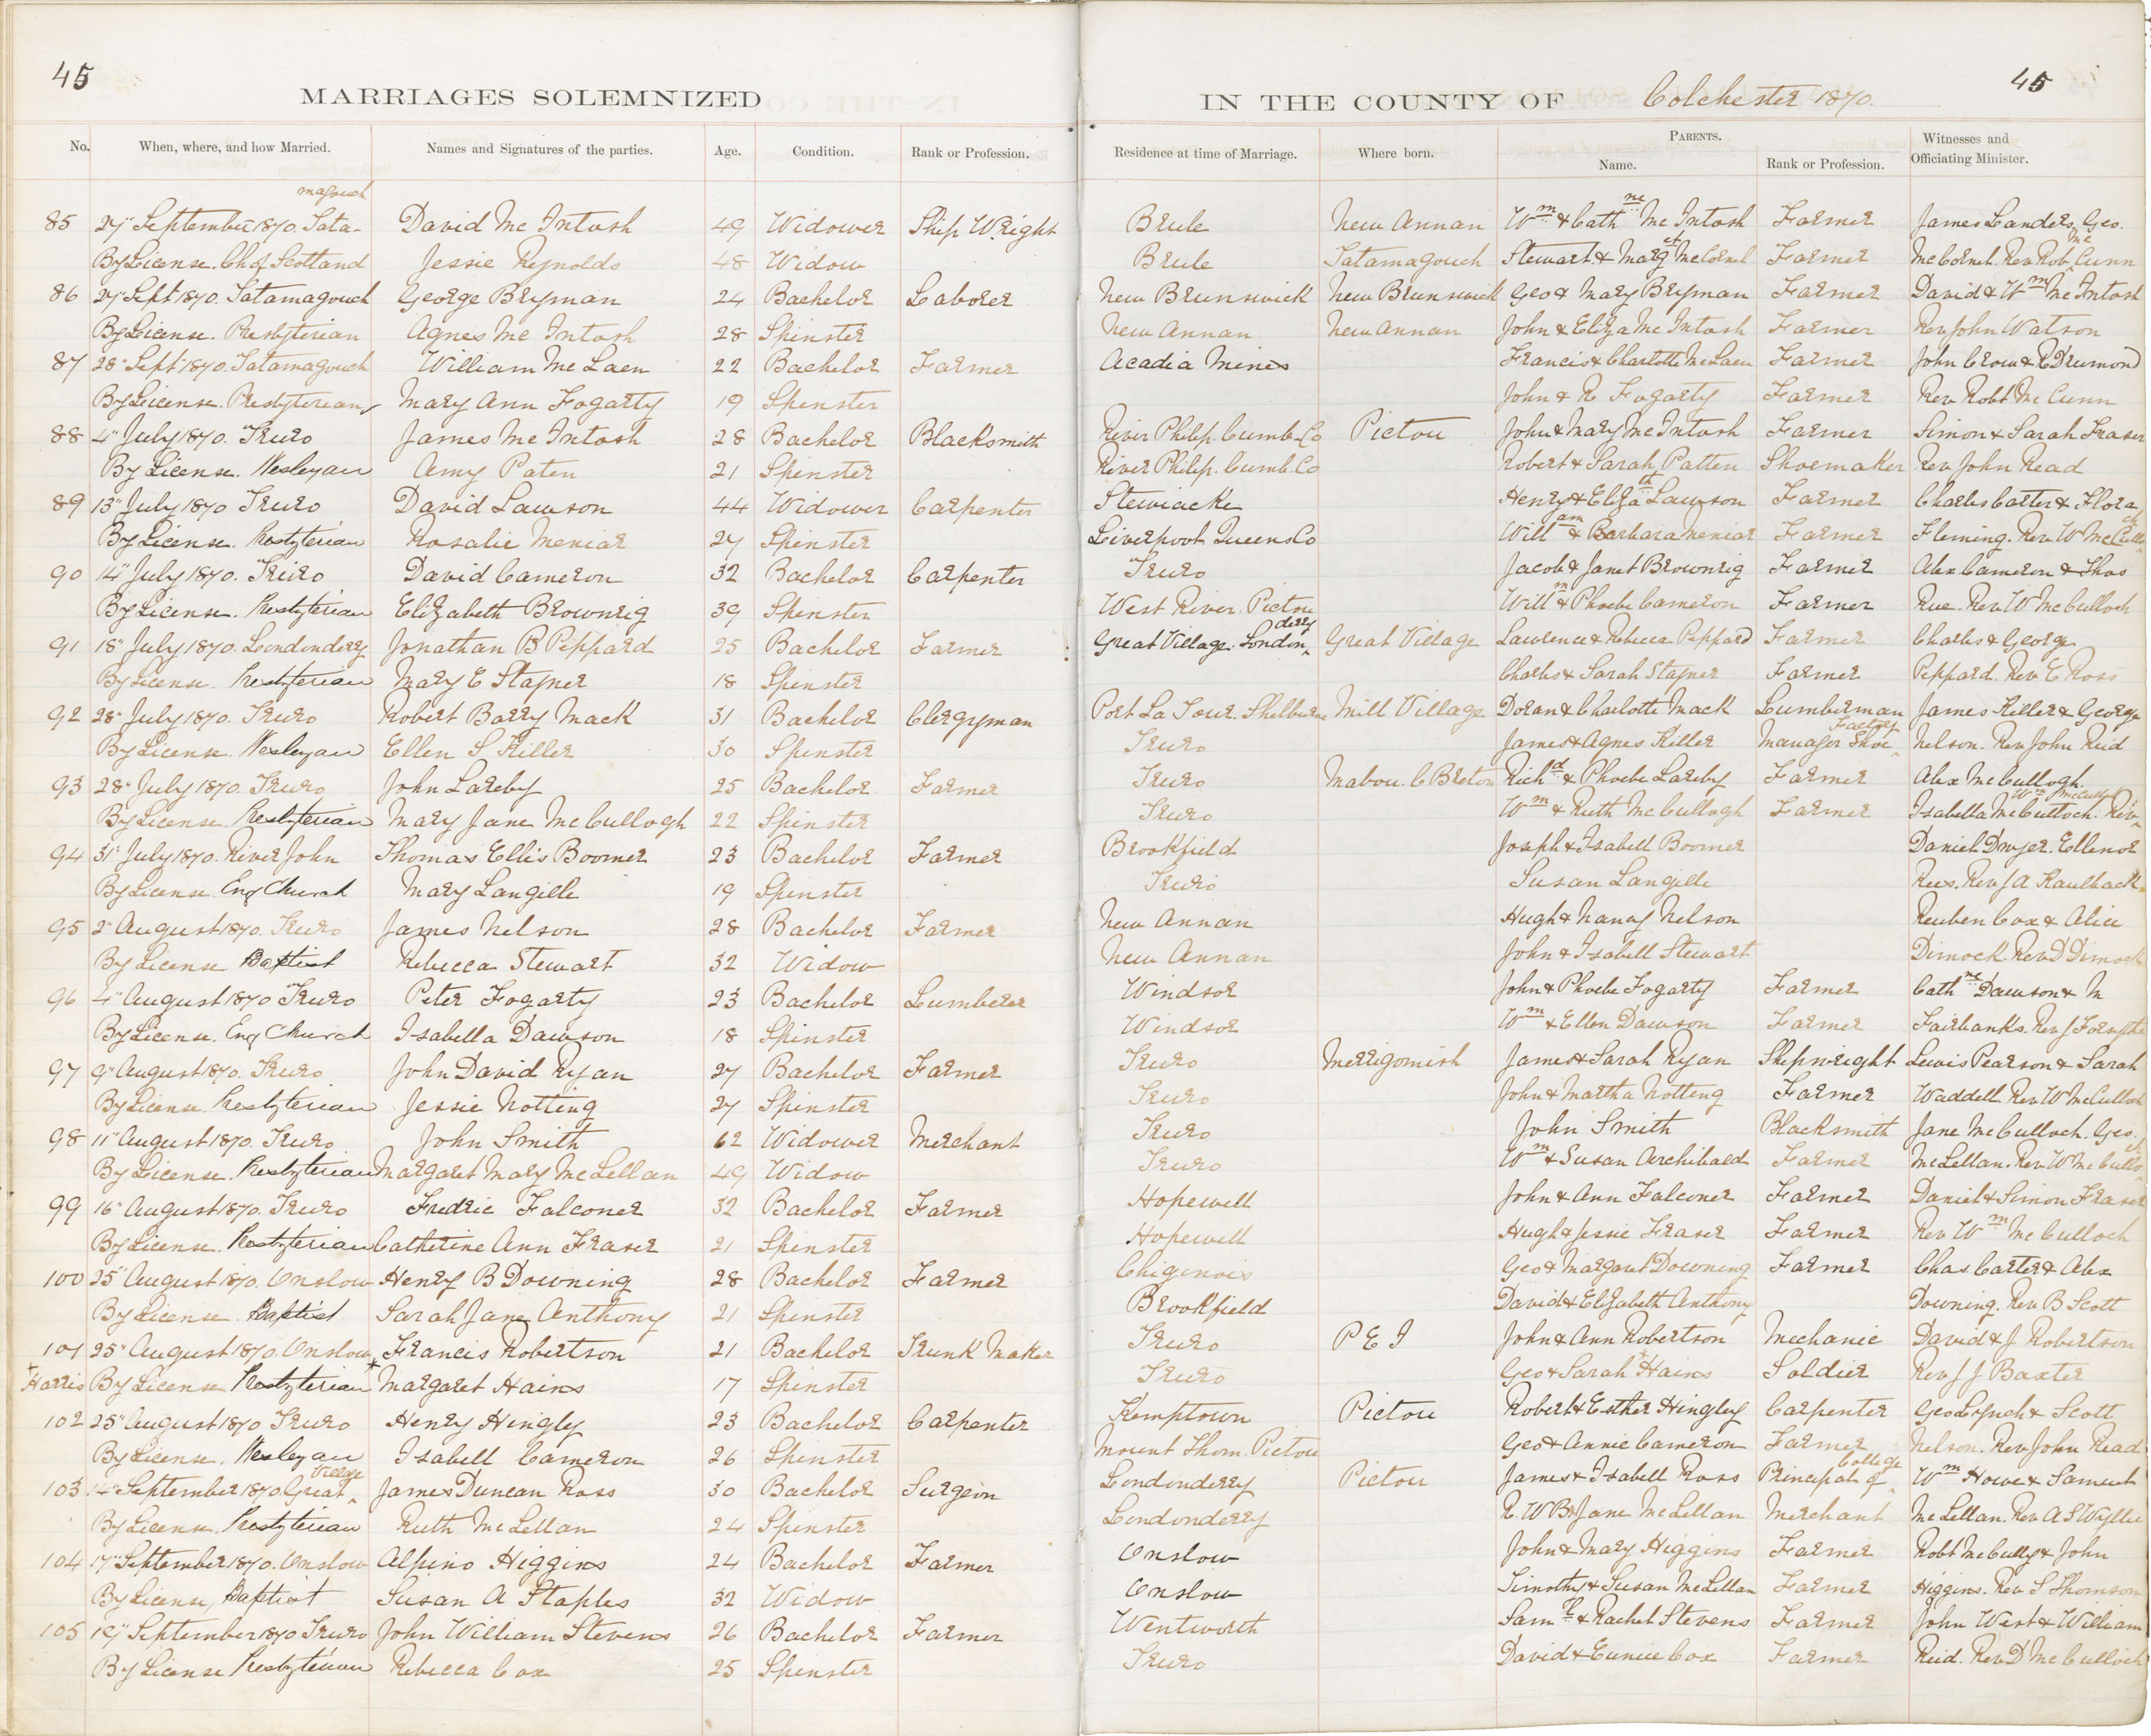 45
45
MARRIAGES SOLEMNIZED IN THE COUNTY OF Colchester 1870.
No. When, where, and how Married. Names and Signatures of the parties. Age. Condition. Rank or Profession. Residence at time of Marriage. Where born. PARENTS. Name. Rank or Profession. Witnesses and Officiating Minister.
magouch
85 27" September 1870. Tata- David Mc Intosh 49 Widower Ship Wright Brule New Annan Wm & Cathne Mc Intosh Farmer James Landers, Geo.
By License. Ch of Scotland Jessie Reynolds 48 Widow Brule Tatamagouch Stewart & Margt McCornel Farmer McCornel. Rev Rob Mc Cunn
86 27" Sept 1870. Tatamagouch George Bryman 24 Bachelor Laborer New Brunswick New Brunswick Geo & Mary Bryman Farmer David & Wm Mc Intosh
By License. Presbyterian Agnes Mc Intosh 28 Spinster New Annan New Annan John & Eliza Mc Intosh Farmer Rev John Watson
87 28" Sept 1870. Tatamagouch William Mc Laen 22 Bachelor Farmer Acadia Mines Francis & Charlotte McLaen Farmer John Crow & R Drumond
By License. Presbyterian Mary Ann Fogarty 19 Spinster John & R Fogarty Farmer Rev Robt Mc Cunn
88 4" July 1870. Truro James Mc Intosh 28 Bachelor Blacksmith River Philip. Cumb. Co Pictou John & Mary Mc Intosh Farmer Simon & Sarah Fraser
By License. Wesleyan Amy Paten 21 Spinster River Philip. Cumb. Co Robert & Sarah Patten Shoemaker Rev John Read
89 13" July 1870 Truro David Lawson 44 Widower Carpenter Stewiacke Henry & Elizath Lawson Farmer Charles Carter & Flora
By License. Presbyterian Rosalie Meniar 27 Spinster Liverpool Queens Co Willam & Barbara Meniar Farmer Fleming. Rev W McCulloch
90 14" July 1870. Truro David Cameron 32 Bachelor Carpenter Truro Jacob & Janet Brownrig Farmer Alex Cameron & Thos
By License. Presbyterian Elizabeth Brownrig 39 Spinster West River. Pictou Willm & Phoebe Cameron Farmer Rue. Rev W McCulloch
91 18" July 1870. Londonderry Jonathan B Peppard 25 Bachelor Farmer Great Village. Londonderry Great Village Lawrence & Rebecca Peppard Farmer Charles & George
By License. Presbyterian Mary E Stayner 18 Spinster Charles & Sarah Stayner Farmer Peppard. Rev E Ross
92 28" July 1870. Truro Robert Barry Mack 31 Bachelor Clergyman Port La Tour. Shelburne Mill Village Doran & Charlotte Mack Lumberman James Killer & George
By License. Wesleyan Ellen S Killer 30 Spinster Truro James & Agnes Killer Manager Shoe Factory Nelson. Rev John Reid
93 28" July 1870. Truro John Lareby 25 Bachelor Farmer Truro Mabou. C Breton Richd & Phoebe Lareby Farmer Alex McCullogh.
By License. Presbyterian Mary Jane McCullogh 22 Spinster Truro Wm & Ruth McCullogh Farmer Isabella McCulloch. Rev Wm McCulloch
94 31" July 1870. River John Thomas Ellis Boomer 23 Bachelor Farmer Brookfield Joseph & Isabell Boomer Daniel Dwyer. Ellenor
By License. Eng Church Mary Langille 19 Spinster Truro Susan Langille Rees. Rev J A Kaulback.
95 2" August 1870. Truro James Nelson 28 Bachelor Farmer New Annan Hugh & Nancy Nelson Reuben Cox & Alice
By License Baptist Rebecca Stewart 32 Widow New Annan John & Isabell Stewart Dimock Rev D Dimock
96 4" August 1870 Truro Peter Fogarty 23 Bachelor Lumberer Windsor John & Phoebe Fogarty Farmer Cathne Dawson & M
By License. Eng Church Isabella Dawson 18 Spinster Windsor Wm & Ellen Dawson Farmer Fairbanks. Rev J Forsythe
97 9" August 1870. Truro John David Ryan 27 Bachelor Farmer Truro Merrigomish James & Sarah Ryan Shipwright Lewis Pearson & Sarah
By License. Presbyterian Jessie Notting 27 Spinster Truro John & Martha Notting Farmer Waddell. Rev W McCulloch
98 11" August 1870. Truro John Smith 62 Widower Merchant Truro John Smith Blacksmith Jane McCulloch. Geo.
By License. Presbyterian Margaret Mary McLellan 49 Widow Truro Wm & Susan Archibald Farmer McLellan. Rev W McCulloch
99 16" August 1870. Truro Fredric Falconer 32 Bachelor Farmer Hopewell John & Ann Falconer Farmer Daniel & Simon Fraser
By License. Presbyterian Catherine Ann Fraser 21 Spinster Hopewell Hugh & Jessie Fraser Farmer Rev Wm McCulloch
100 25" August 1870. Onslow Henry B Downing 28 Bachelor Farmer Chiginois Geo & Margaret Downing Farmer Chas. Carter & Alex
By License. Baptist Sarah Jane Anthony 21 Spinster Brookfield David & Elizabeth Anthony Downing. Rev B Scott
101 25" August 1870. Onslow Francis Robertson 21 Bachelor Trunk Maker Truro P E I John & Ann Robertson Mechanic David & J Robertson
+Harris By License. Presbyterian +Margaret Hains 17 Spinster Truro Geo & Sarah +Hains Soldier Rev J J Baxter
102 25" August 1870 Truro Henry Hingly 23 Bachelor Carpenter Kemptown Pictou Robert & Esther Hingley Carpenter Geo Lynch & Scott
By License. Wesleyan Isabell Cameron 26 Spinster Mount Thom. Pictou Geo & Annie Cameron Farmer Nelson. Rev John Read
103 14" September 1870. Great Village James Duncan Ross 30 Bachelor Surgeon Londonderry Pictou James & Isabell Ross Principal of College Wm Howe & Samuel
By License. Presbyterian Ruth McLellan 24 Spinster Londonderry R. W B & Jane McLellan Merchant McLellan. Rev A S Wyllie
104 17" September 1870. Onslow Alpino Higgins 24 Bachelor Farmer Onslow John & Mary Higgins Farmer Robt McCully & John
By License, Baptist Susan A Staples 32 Widow Onslow Timothy & Susan McLellan Farmer Higgins. Rev S Thomson
105 19" September 1870 Truro John William Stevens 26 Bachelor Farmer Wentworth Samll & Rachel Stevens Farmer John West & William
By License Presbyterian Rebecca Cox 25 Spinster Truro David & Eunice Cox Farmer Reid. Rev D McCulloch